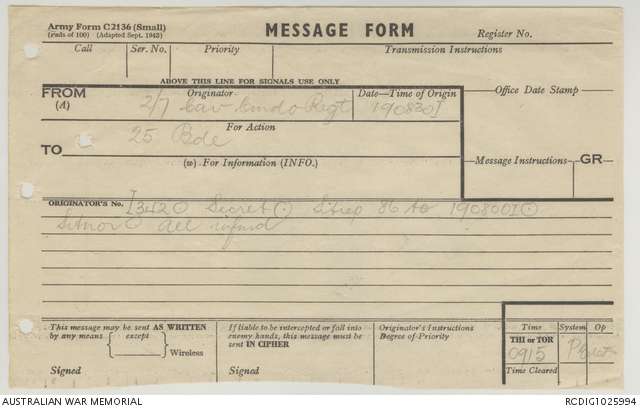 Army Form C2136 (Small)
(Pads of 100) (Adapted Sept. 1943)
MESSAGE FORM
Register No.
Call
Ser. No.
Priority
Transmission Instructions
ABOVE THIS LINE FOR SIGNALS USE ONLY
FROM
(A)
Originator
2/7 Cav Cmdo Regt
Date—Time of Origin
190830I
Office Date Stamp
For Action
25 Bde
TO
(W) For Information (INFO.)
Message Instructions
GR
ORIGINATOR'S No.
I342 Secret Sitrep 86 to 190800I
All infmd
This message may be sent AS WRITTEN
by any means
except
Wireless
Signed
If liable to be intercepted or fall into
enemy hands, this message must be
sent IN CIPHER
Signed
Originator's Instructions
Degree of Priority
Time
System
Op
THI or TOR
0915
Time Cleared
AUSTRALIAN WAR MEMORIAL
RCDIG1025994